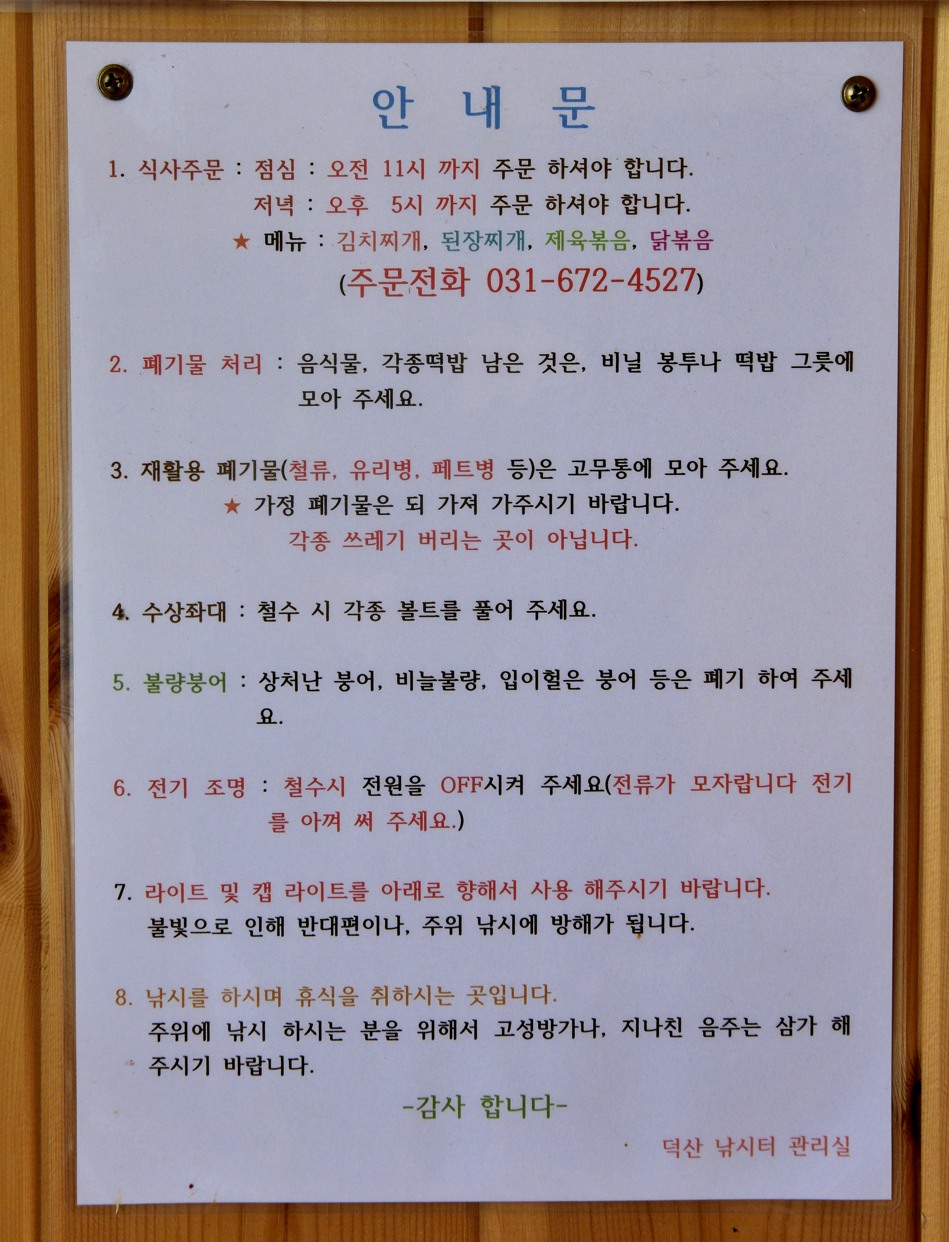 안 내 문
1. 식사주문 : 점심 : 오전 11시 까지 주문 하셔야 합니다.
저녁 : 오후 5시 까지 주문 하셔야 합니다.
★ 메뉴 : 김치찌개, 된장찌개, 제육볶음, 닭볶음
(주문전화 031-672-4527)
2. 폐기물 처리 : 음식물, 각종떡밥 남은 것은, 비닐 봉투나 떡밥 그릇에
모아 주세요.
3. 재활용 폐기물(철류, 유리병, 페트병 등)은 고무통에 모아 주세요.
★ 가정 폐기물은 되 가져 가주시기 바랍니다.
각종 쓰레기 버리는 곳이 아닙니다.
4. 수상좌대 : 철수 시 각종 볼트를 풀어 주세요.
5. 불량붕어 : 상처난 붕어, 비늘불량, 입이헐은 붕어 등은 폐기 하여 주세
요.
6. 전기 조명 : 철수시 전원을 OFF시켜 주세요(전류가 모자랍니다 전기
를 아껴 써 주세요.)
7. 라이트 및 캡 라이트를 아래로 향해서 사용 해주시기 바랍니다.
불빛으로 인해 반대편이나, 주위 낚시에 방해가 됩니다.
8. 낚시를 하시며 휴식을 취하시는 곳입니다.
주위에 낚시 하시는 분을 위해서 고성방가나, 지나친 음주는 삼가 해
주시기 바랍니다.
-감사 합니다-
덕산 낚시터 관리실